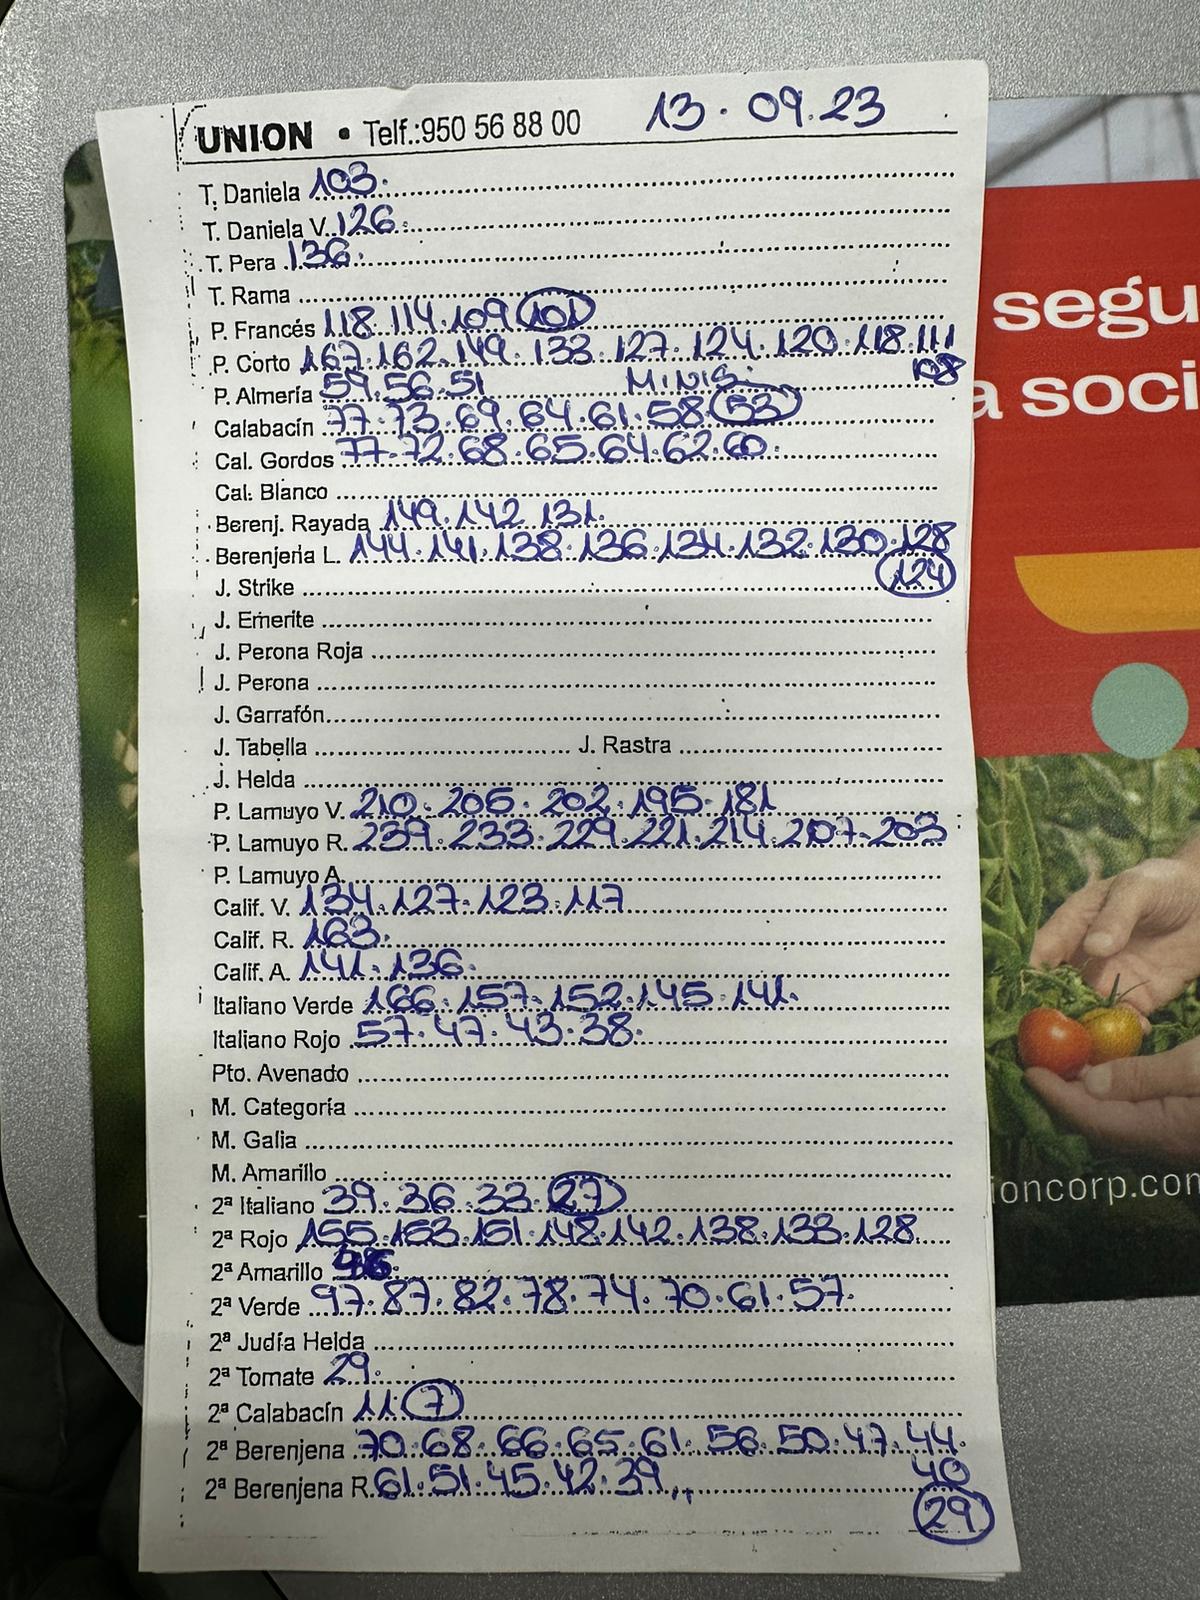 UNION • Telf.:950 56 88 00 13.09.23
T. Daniela 103.
T. Daniela V. 126.
T. Pera 136.
T. Rama
P. Francés 118 114.109 101
P. Corto 167.162.149.133.127.124.120.118.111
108
P. Almería 59.56.51 MINIS:
Calabacín 77.73.69.64.61.58 53
Cal. Gordos 77.72.68.65.64.62.60.
Cal. Blanco
Berenj. Rayada 149.142 131.
Berenjena L. 144.141.138.136.134.132.130.128
124
J. Strike
J. Emerite
J. Perona Roja
J. Perona
J. Garrafón
J. Tabella J. Rastra
J. Helda
P. Lamuyo V. 210.205.202.195.181
P. Lamuyo R. 239.233.229.221.214.207.203
P. Lamuyo A.
Calif. V. 134.127.123.117
Calif. R. 163.
Calif. A. 141.136.
Italiano Verde 166.157.152.145.141.
Italiano Rojo 57.47.43.38.
Pto. Avenado
M. Categoría
M. Galia
M. Amarillo
2ª Italiano 39.36.33.27
2ª Rojo 155.153.151.148.142.138.133.128
2ª Amarillo
2ª Verde 97.87.82.78.74.70.61.57.
2ª Judía Helda
2ª Tomate 29.
2ª Calabacín 11 7
2ª Berenjena 70.68.66.65.61.56.50.47.44.
40
2ª Berenjena R. 61.51.45.42.39
29
segu
a soci
ioncorp.com